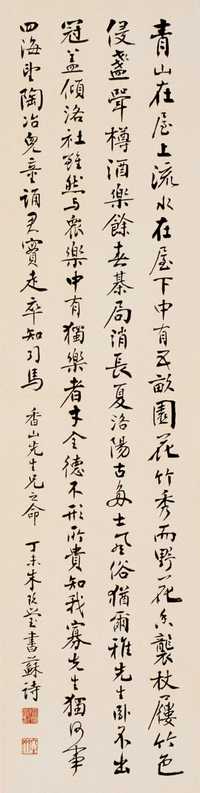 青山在屋上流水在屋下中有五畝園花竹秀而野花香襲杖屨竹色
侵盞斝樽酒樂餘春棊局消長夏洛陽古多士風俗猶爾雅先生卧不出
冠蓋傾洛社雖然与衆樂中有獨樂者才全德不形所貴知我寡先生獨何事
四海望陶冶兒童誦君實走卒知司馬 香山先生兄之命 丁未朱玖瑩書蘇詩